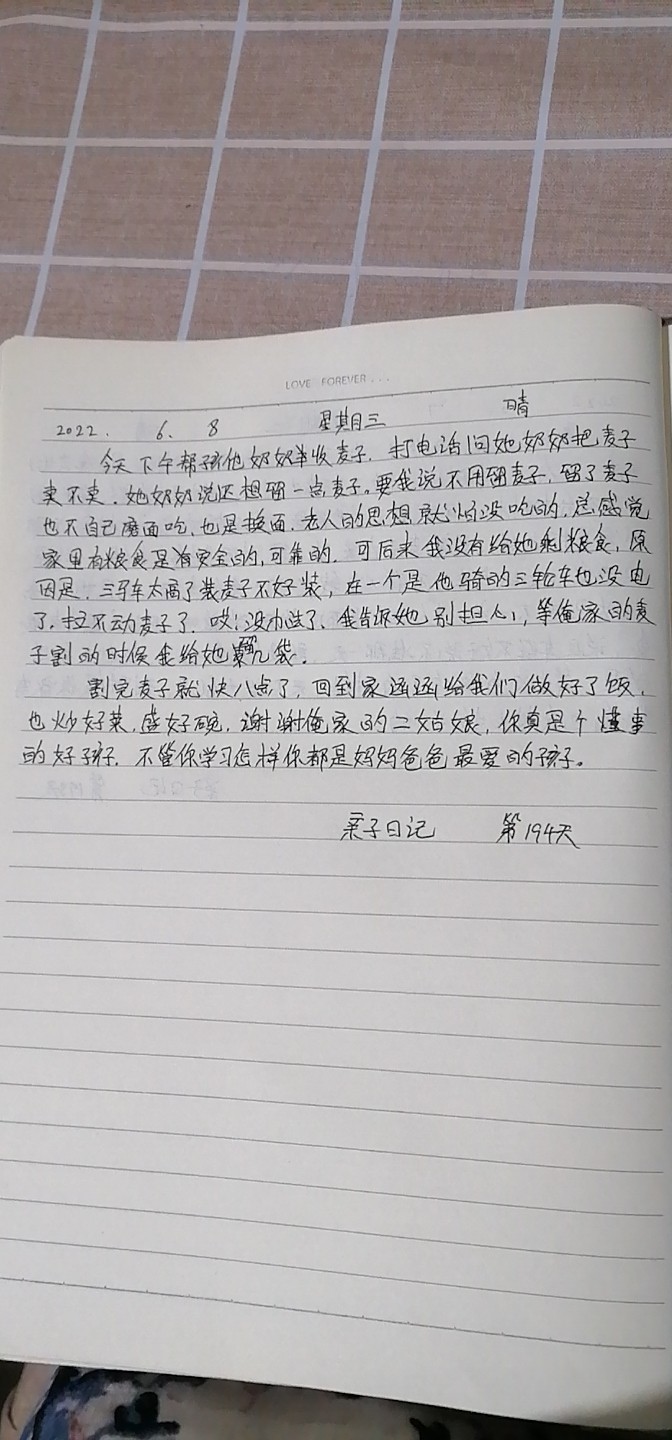 LOVE FOREVER...
2022. 6. 8 星期三 晴
今天下午帮孩他奶奶收麦子. 打电话问她奶奶把麦子
卖不卖. 她奶奶说还想留一点麦子。要我说不用留麦子, 留了麦子
也不自己磨面吃, 也是换面. 老人的思想就怕没吃的, 总感觉
家里有粮食是有安全的, 可靠的. 可后来我没有给她剩粮食, 原
因是. 三马车太高了装麦子不好装, 在一个是他骑的三轮车也没电
了. 拉不动麦子了. 哎! 没办法了、我告诉她别担心, 等俺家的麦
子割的时候我给她留几袋.
割完麦子就快八点了, 回到家涵涵给我们做好了饭,
也炒好菜, 盛好碗, 谢谢俺家的二姑娘, 你真是个懂事
的好孩子. 不管你学习怎样你都是妈妈爸爸最爱的孩子。
亲子日记 第194天